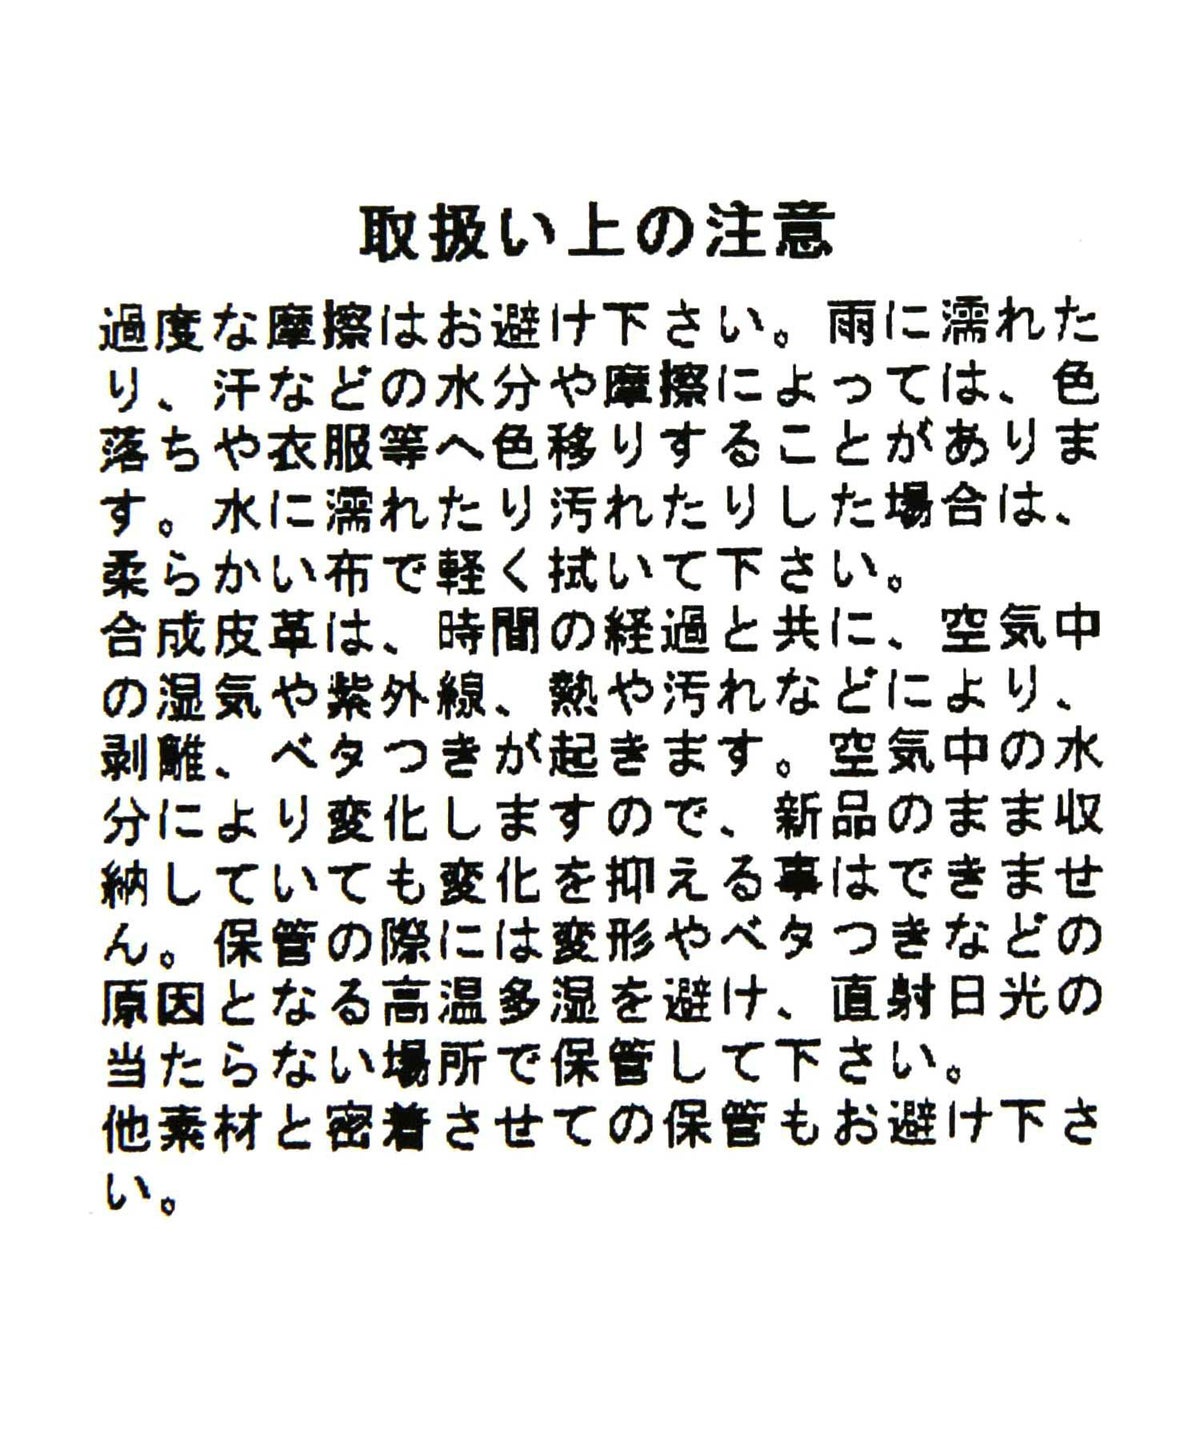 取扱い上の注意
過度な摩擦はお避け下さい。雨に濡れた
り、汗などの水分や摩擦によっては、色
落ちや衣服等へ色移りすることがありま
す。水に濡れたり汚れたりした場合は、
柔らかい布で軽く拭いて下さい。
合成皮革は、時間の経過と共に、空気中
の湿気や紫外線、熱や汚れなどにより、
剥離、ベタつきが起きます。空気中の水
分により変化しますので、新品のまま収
納していても変化を抑える事はできませ
ん。保管の際には変形やベタつきなどの
原因となる高温多湿を避け、直射日光の
当たらない場所で保管して下さい。
他素材と密着させての保管もお避け下さ
い。